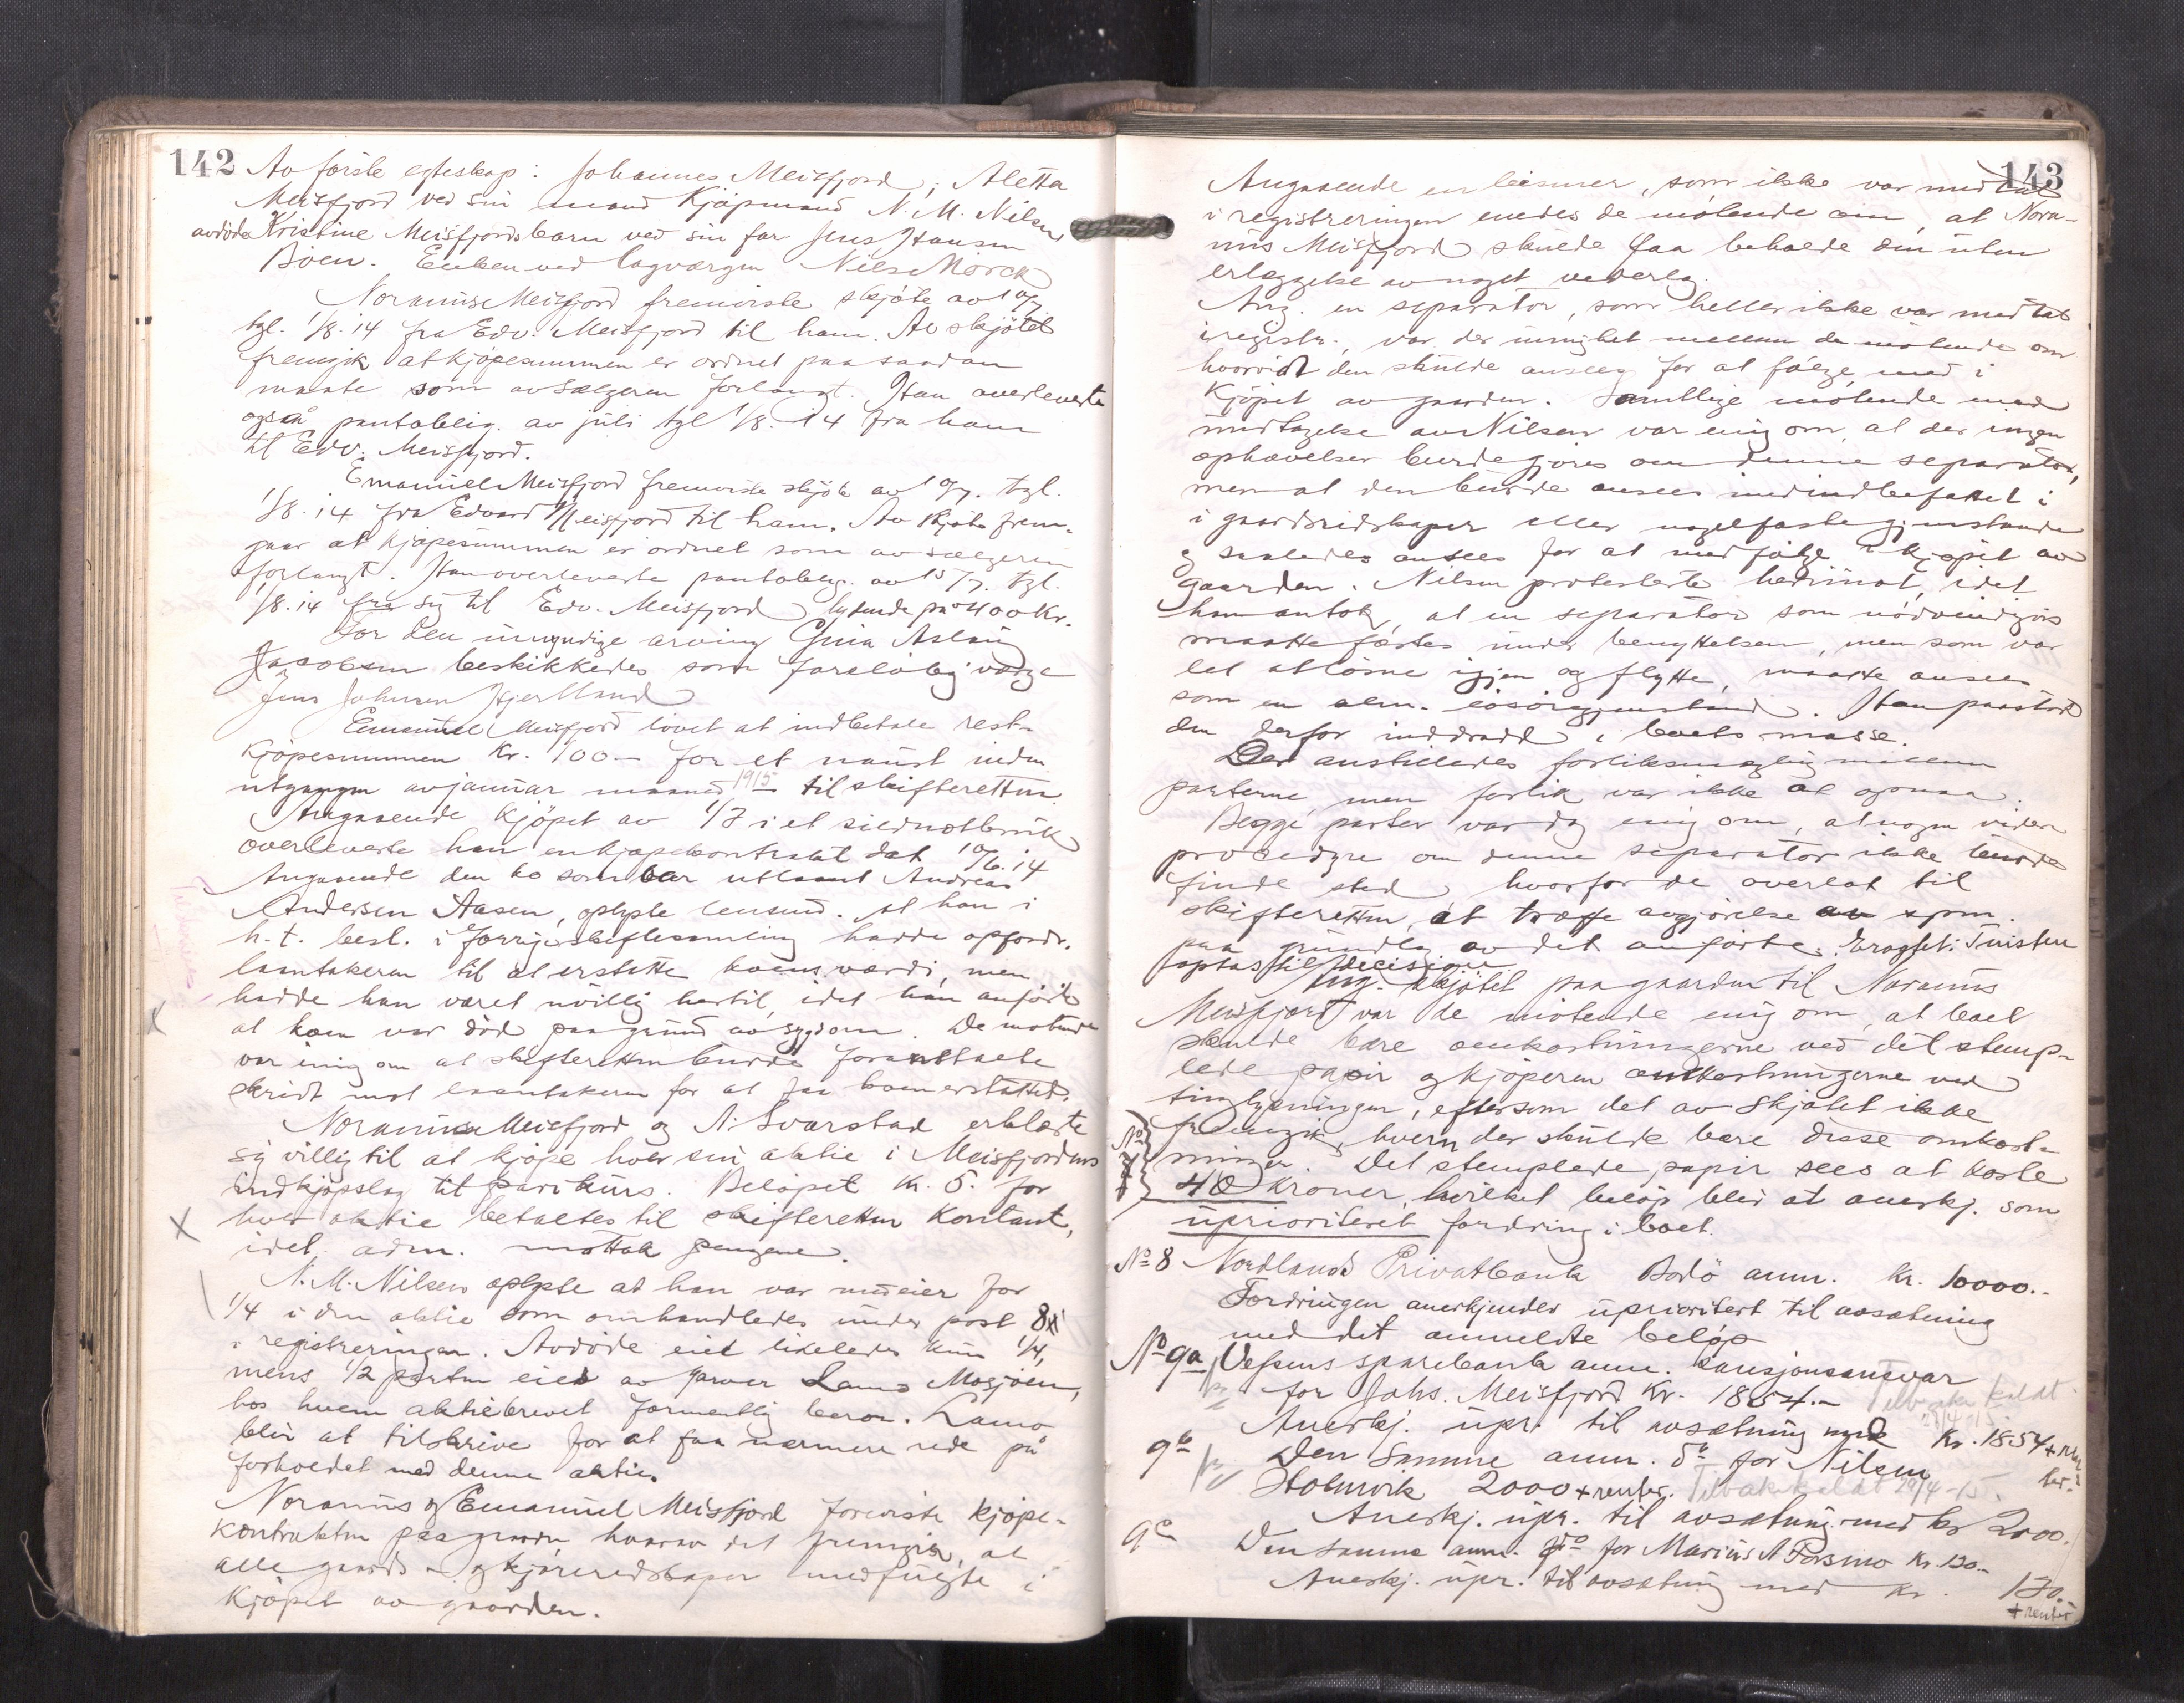 142
Av förste egteskap: Johannes Meisfjord, Aletta
Meisfjord ved sin mand Kjöpmand N. M. Nilsen
avdöde Kristine Meisfjords barn ved sin far Jens Hansen
Böen. Enken ved lagvergen Nils Mörck
Noranius Meisfjord fremviste skjöte av 10/7
tgl. 1/8.14 fra Edv. Meisfjord til ham. Av skjötet
fremgik at kjöpesummen er ordnet paa saadan
maate som av sælgeren forlangt. Han overleverte
også pantoblig. av juli tgl 1/8.14 fra ham
til Edv. Meisfjord.
Emanuel Meisfjord fremviste skjöte av 10/7. tgl.
1/8.14 fra Edvard Meisfjord til ham. Av skjöte frem-
gaar at kjöpesummen er ordnet som av sælgeren
forlangt. Han overleverte pantoblig. av 15/7. tgl.
1/8.14 fra sig til Edv. Meisfjord lydende på 400 kr.
For den umyndige arving Gina Aslaug
Jacobsen beskikkedes som foreløbig værge
Jens Johnsen Hjertland
Emanuel Meisfjord lovet at indbetale rest-
kjöpesummen kr. 100.- for et naust inden
utgangen av januar maaned 1915 til skifteretten
Angaaende kjöpet av 1/7 i et sildnotbruk
overleverte han en kjöpekontrakt dat 10/6.14
Angaaende den ko som var utlaant Andreas
Andersen Aasen, oplyste lensmd. at han i
h.t. besl. i forrige skiftesamling hadde opfordr.
laantakeren til at erstatte koens værdi, men
hadde han været uvillig hertil, idet han anförte
at koen var död paa grund av sygdom. De mötende
var enig om at skifteretten burde foranstalte
skridt mot laantakeren for at faa koen erstattet.
Noranius Meisfjord og N. Svarstad erklærte
sig villig til at kjöpe hver sin aktie i Meisfjordens
indkjöpslag til parikurs. Belöpet kr. 5. for
hver aktie betaltes til skifteretten kontant,
idet adm. mottok pengene.
N. M. Nilsen oplyste at han var medeier for
1/4 i den aktie som omhandledes under post 8
i registreringen. Avdöde eiet likeledes kun 1/4,
mens 1/2 parten eies av garver Lamo Mosjøen,
hos hvem aktiebrevet formentlig beror. Lamo
blir at tilskrive for at faa nærmere rede på
forholdet med denne aktie.
Noranius og Emanuel Meisfjord foreviste kjöpe-
kontrakten paa gaarden hvorav det fremgik, at
alle gaards- og kjöreredskaper medfulgte i
kjöpet av gaarden.
143
Angaaende en leismer, som ikke var medtat
i registreringen enedes de mötende om, at Nora-
nius Meisfjord skulde faa beholde den uten
erlæggelse av noget vederlag.
Ang. en separator, som heller ikke var medtat
i registr., var der uenighet mellem de mötende om
hvorvidt den skulde ansees for at fölge med i
kjöpet av gaarden. Samtlige mötende med
undtagelse av Nilsen var enig om, at der ingen
ophævelser burde gjöres om denne separator,
men at den burde ansees medindbefattet i
i gaardsredskaper eller nagelfaste gjenstande
og saaledes ansees for at medfölge i kjöpet av
gaarden. Nilsen protesterte herimot, idet
han antok, at en separator som nödvendigvis
maatte fæstes under benyttelsen, men som var
let at lösne igjen og flytte, maatte ansees
som en alm. lösöregjenstand. Han paastod
den derfor inddradd i boets masse.
Det anstilledes forliksmægling mellem
parterne, men forlik var ikke at opnaa.
Begge parter var dog enig om, at nogen videre
procedyre om denne separator ikke burde
finde sted hvorfor de overlot til
skifteretten at træffe avgjörelse av spm.
paa grundlag av det anförte. Eragset: Tvisten
optas til decision
Ang. skjötet paa gaarden til Noranius
Meisfjord var de mötende enig om, at boet
skulde bære omkostningerne ved det stemp-
lede papir og kjöperen omkostningerne ved
tinglysningen, eftersom det av skjötet ikke
fremgik, hvem der skulde bære disse omkost-
ninger. Det stemplede papir sees at koste
No 7
40 kroner, hvilket belöp blir at anerkj. som
uprioritert fordring i boet.
No 8 Nordlands Privatbank Bodö anm. kr. 10000.-
Fordringen anerkjendes uprioritert til avsætning
med det anmeldte belöp
No 9a Vefsens sparebank anm. kausjonsansvar
for Johs. Meisfjord kr. 1854.- Tilbakekaldt
Anerkj. upr. til avsætning med kr. 1854 + ren-
ter.
9b Den samme anm. do for Nilsen
Holmvik 2000 + renter. Tilbakekaldt 29/4-15.
Anerkj. upr. til avsætning med kr 2000.
9c Den samme anm. do for Marius A Forsmo kr. 120.-
Anerkj. upr. til avsætning med kr. 120.
+ renter